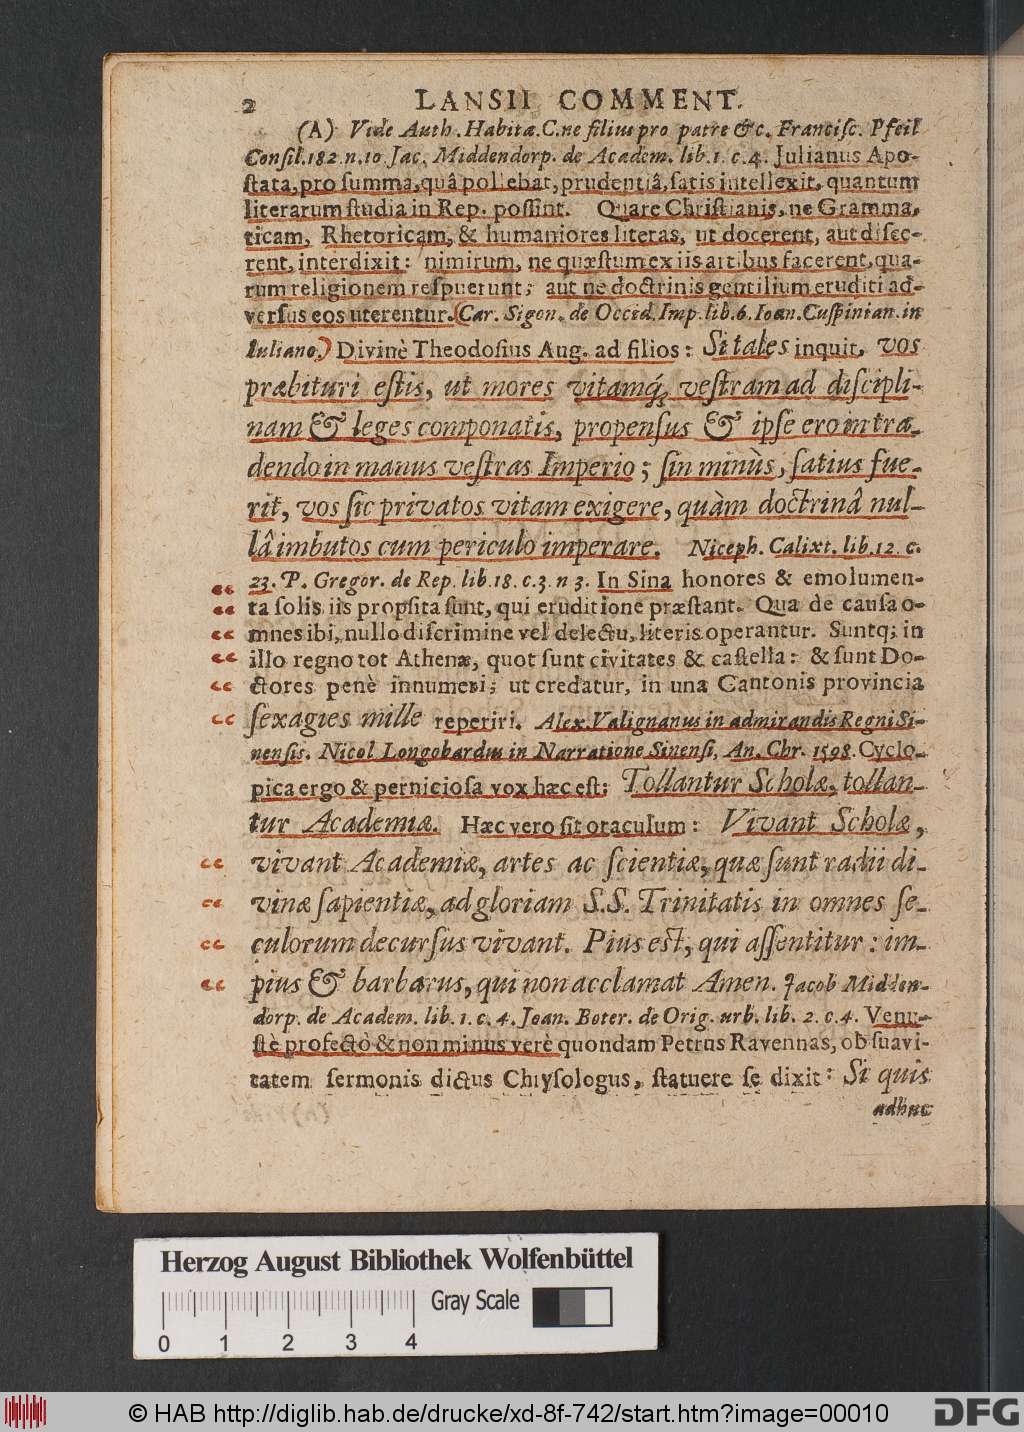 2 LANSII COMMENT.
(A) Vide Auth. Habita. C. ne filius pro patre &c. Francisc. Pfeil
Consil. 182. n. 10 Jac. Middendorp. de Academ. lib. 1. c. 4. Julianus Apo-
ſtata, pro ſumma, quâ pollebat, prudentiâ, ſatis intellexit, quantum
literarum ſtudia in Rep. poſſint. Quare Chriſtianis, ne Gramma,
ticam, Rhetoricam, & humaniores literas, ut docerent, aut diſce-
rent, interdixit: nimirum, ne quæſtum ex iis artibus facerent, qua-
rum religionem reſpuerunt; aut ne doctrinis gentilium eruditi ad-
verſus eos uterentur. Car. Sigon. de Occid. Imp. lib. 6. Ioan. Cuſpinian. in
Iuliano. Divinè Theodoſius Aug. ad filios: Si tales inquit, vos
præbituri eſtis, ut mores vitamq́; veſtram ad diſcipli-
nam & leges componatis, propenſus & ipſe ero in tra-
dendo in manus veſtras Imperio; ſin minùs, ſatius fue-
rit, vos ſic privatos vitam exigere, quàm doctrinâ nul-
lâ imbutos cum periculo imperare. Niceph. Calixt. lib. 12. c.
23. P. Gregor. de Rep. lib. 18. c. 3. n 3. In Sina honores & emolumen-
ta ſolis iis propſita ſunt, qui eruditione præſtant. Qua de cauſa o-
mnes ibi, nullo diſcrimine vel delectu, literis operantur. Suntq; in
illo regno tot Athenæ, quot ſunt civitates & caſtella: & ſunt Do-
ctores penè innumeri; ut credatur, in una Cantonis provincia
ſexagies mille reperiri. Alex. Valignanus in admirandis Regni Si-
nenſis. Nicol Longobardus in Narratione Sinenſi, An. Chr. 1598. Cyclo-
pica ergo & pernicioſa vox hæc eſt: Tollantur Scholæ, tollan-
tur Academiæ. Hæc vero ſit oraculum: Vivant Scholæ,
vivant Academiæ, artes ac ſcientiæ, quæ ſunt radii di-
vinæ ſapientiæ, ad gloriam S.S. Trinitatis in omnes ſe-
culorum decurſus vivant. Pius eſt, qui aſſentitur: im-
pius & barbarus, qui non acclamat Amen. Jacob Midden-
dorp. de Academ. lib. 1. c. 4. Joan. Boter. de Orig. urb. lib. 2. c. 4. Venu-
ſtè profectò & non minus verè quondam Petrus Ravennas, ob ſuavi-
tatem ſermonis dictus Chryſologus, ſtatuere ſe dixit: Si quis
adhuc
Herzog August Bibliothek Wolfenbüttel
Gray Scale
0 1 2 3 4
© HAB http://diglib.hab.de/drucke/xd-8f-742/start.htm?image=00010
DFG